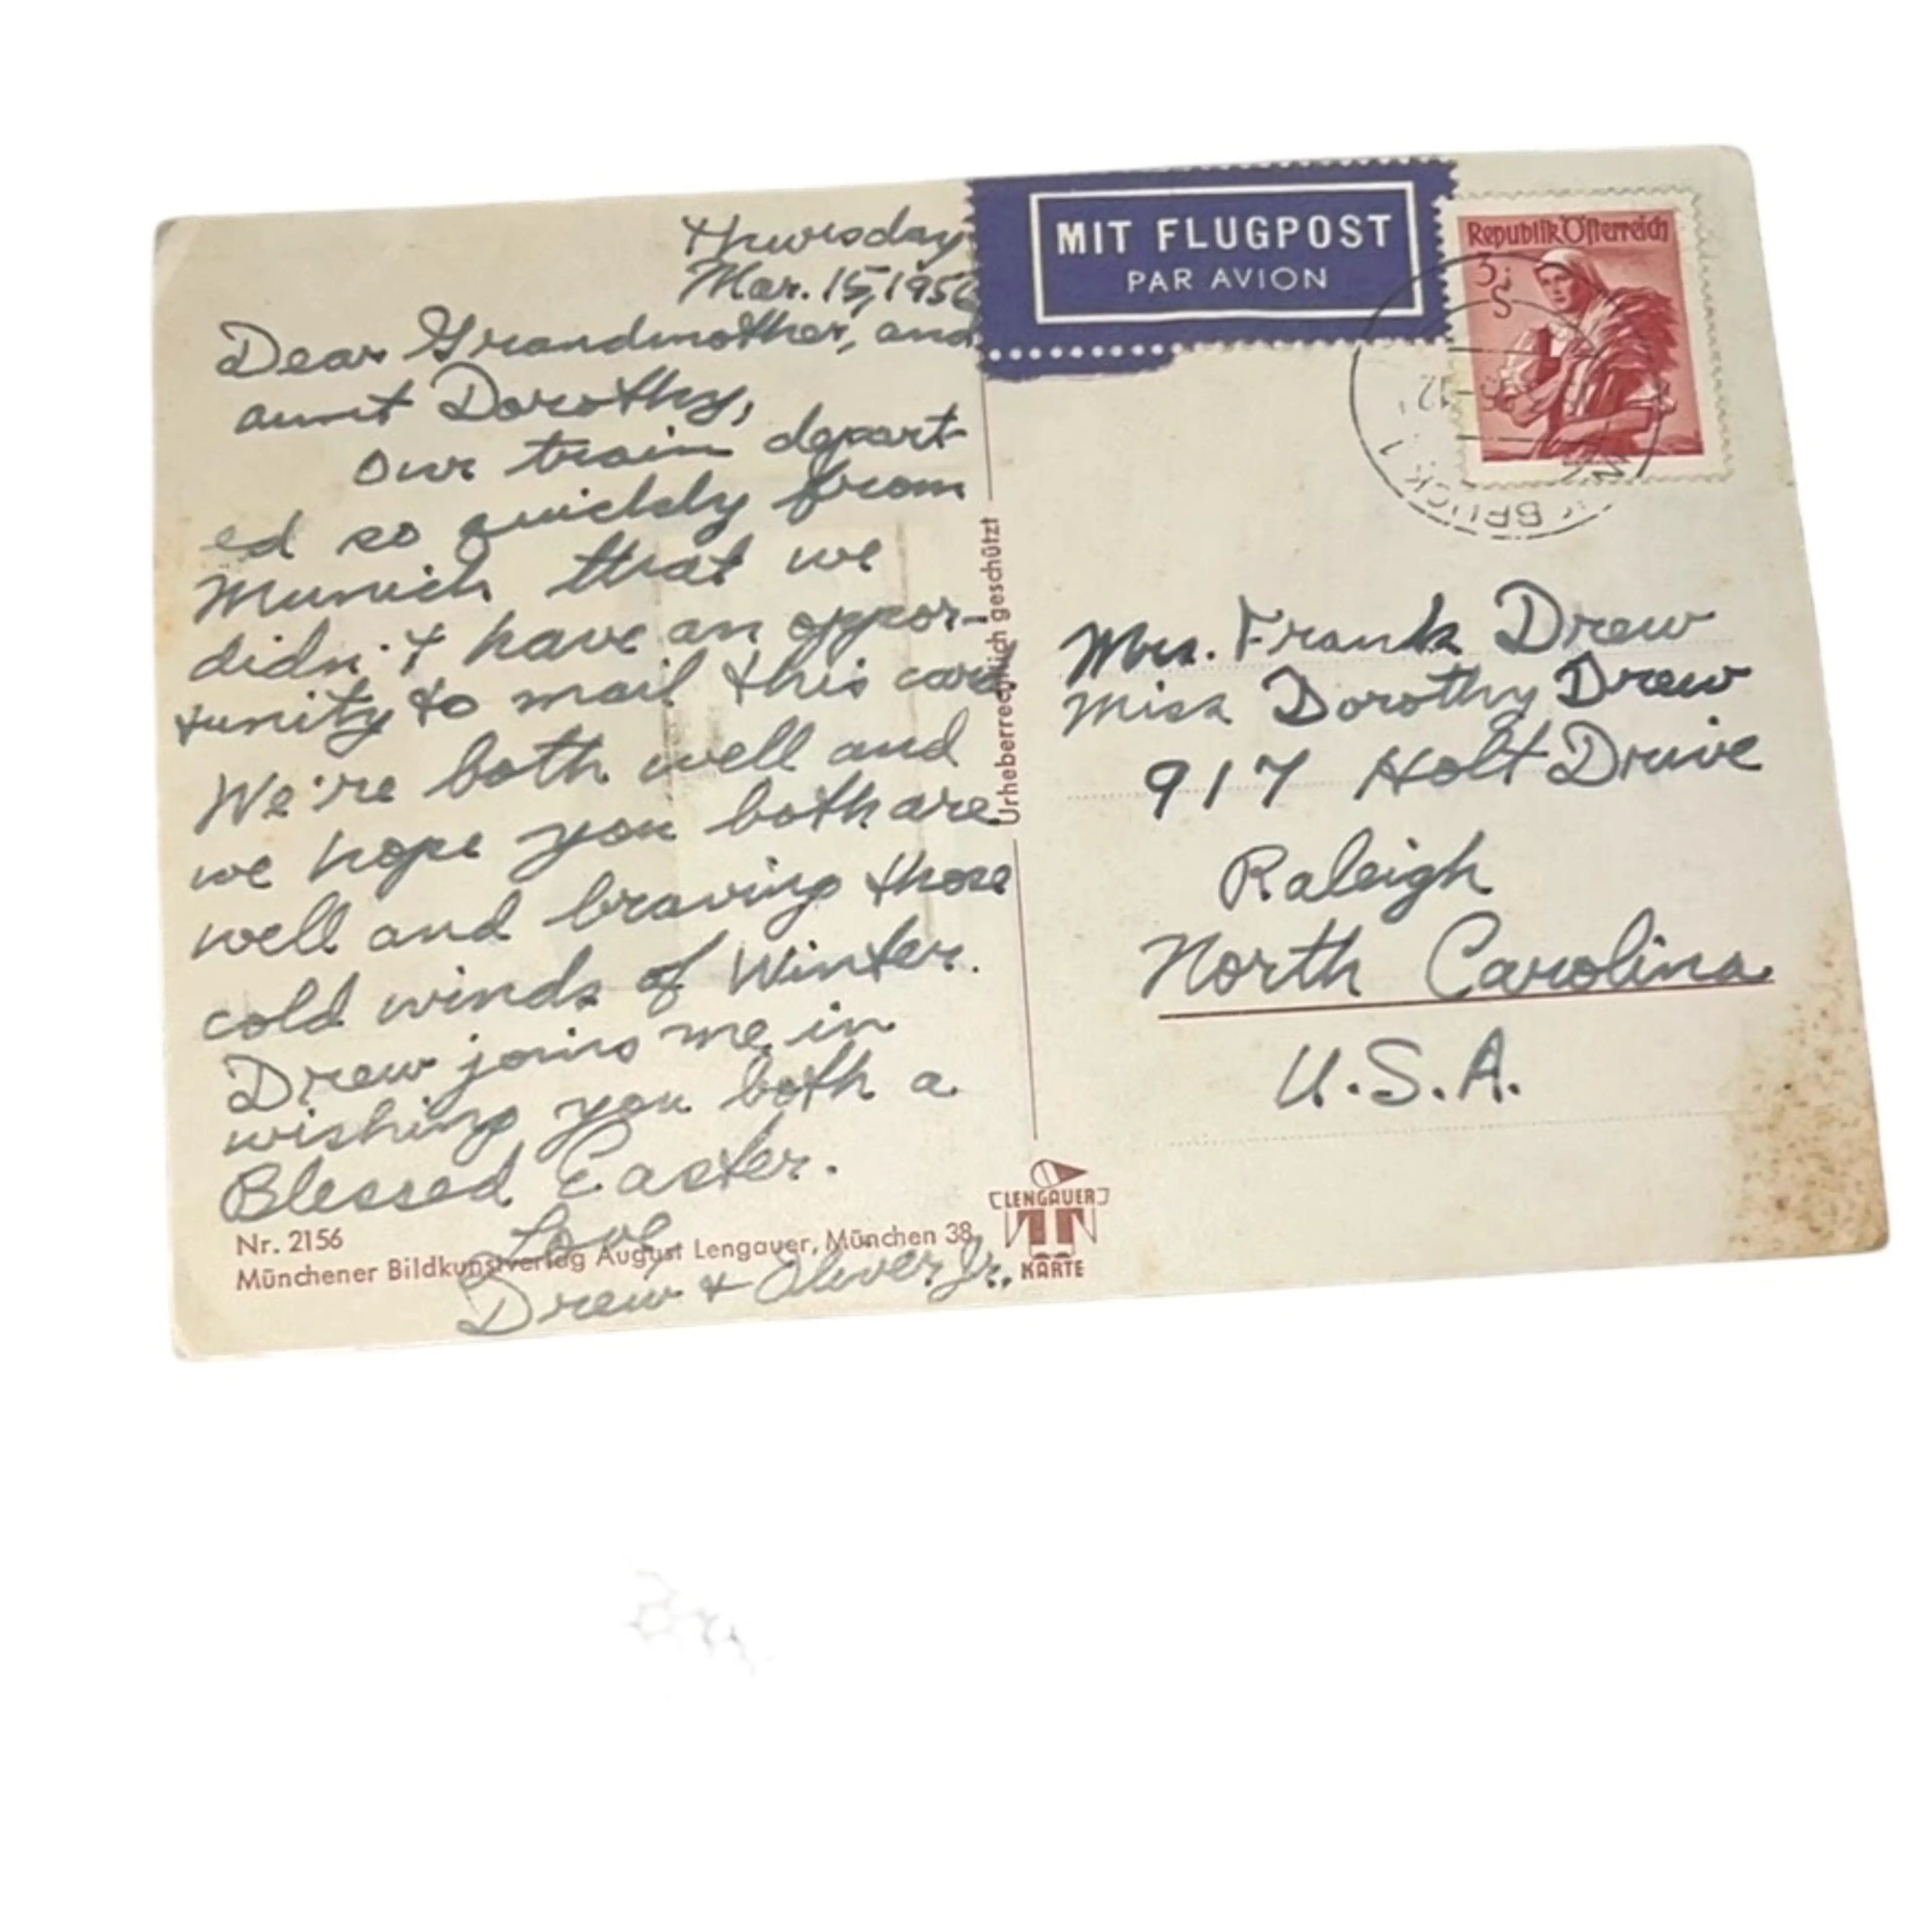 Thursday
Mar. 15, 1956
Dear Grandmother, and
aunt Dorothy,
Our train depart
ed so quickly from
Munich that we
didn't have an oppor-
tunity to mail this card
We're both well and
we hope you both are
well and braving those
cold winds of Winter.
Drew joins me in
wishing you both a
Blessed Easter.
Love,
Drew + Oliver Jr.
Nr. 2156
Münchener Bildkunstverlag August Lengauer, München 38
Urheberrechtlich geschützt
LENGAUER
KARTE
MIT FLUGPOST
PAR AVION
Republik Österreich
3
S
BRUCK 1
Mrs. Frank Drew
Miss Dorothy Drew
917 Holt Drive
Raleigh
North Carolina
U.S.A.